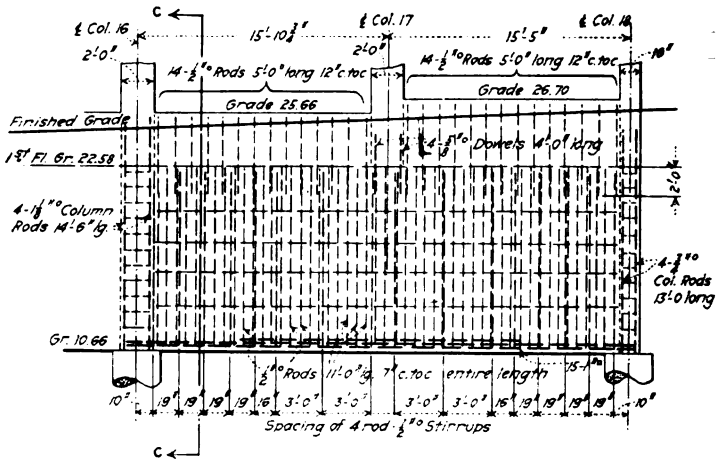 C
℄ Col. 16
℄ Col. 17
℄ Col. 18
15'-10 3/4"
15'-5"
2'-0"
2'-0"
18"
14-1/2"ø Rods 5'-0" long 12" c. to c.
14-1/2"ø Rods 5'-0" long 12" c. to c.
Grade 25.66
Grade 26.70
Finished Grade
4-5/8"ø Dowels 4'-0" long
1st Fl. Gr. 22.58
2'-0"
4-1 1/8"ø Column
Rods 14'-6" lg.
4-3/4"ø
Col. Rods
13'-0 long
Gr. 10.66
1/2"ø Rods 11'-0" lg. 7" c. to c. entire length
10" 19" 19" 19" 19" 16" 3'-0" 3'-0" 3'-0" 3'-0" 16" 19" 19" 19" 10"
Spacing of 4 rod 1/2"ø Stirrups
C